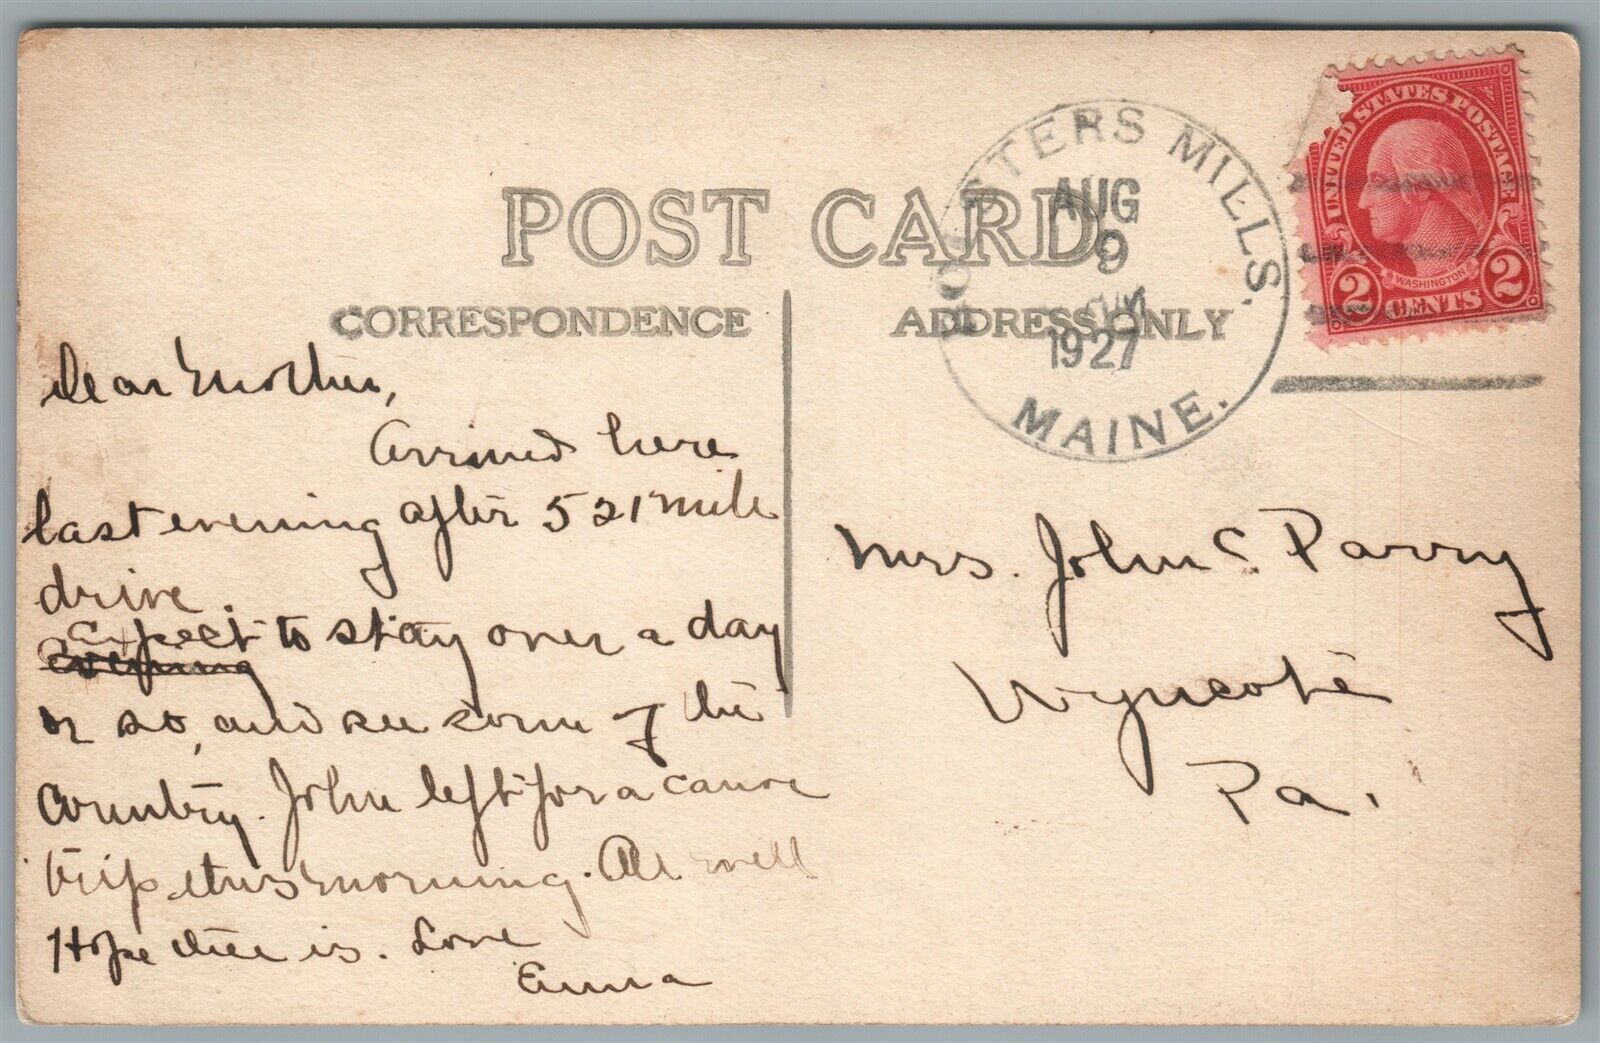 POST CARD
CORRESPONDENCE
ADDRESS ONLY
STERS MILLS,
AUG
9
1927
MAINE.
UNITED STATES POSTAGE
WASHINGTON
2 CENTS 2
Dear Mother,
Arrived here
last evening after 521 mile
drive.
Expect to stay over a day
or so, and see some of the
Country. John left for a canoe
trip this morning. All well
Hope thee is. Love
Emma
Mrs. John C Parry
Wyncote
Pa.